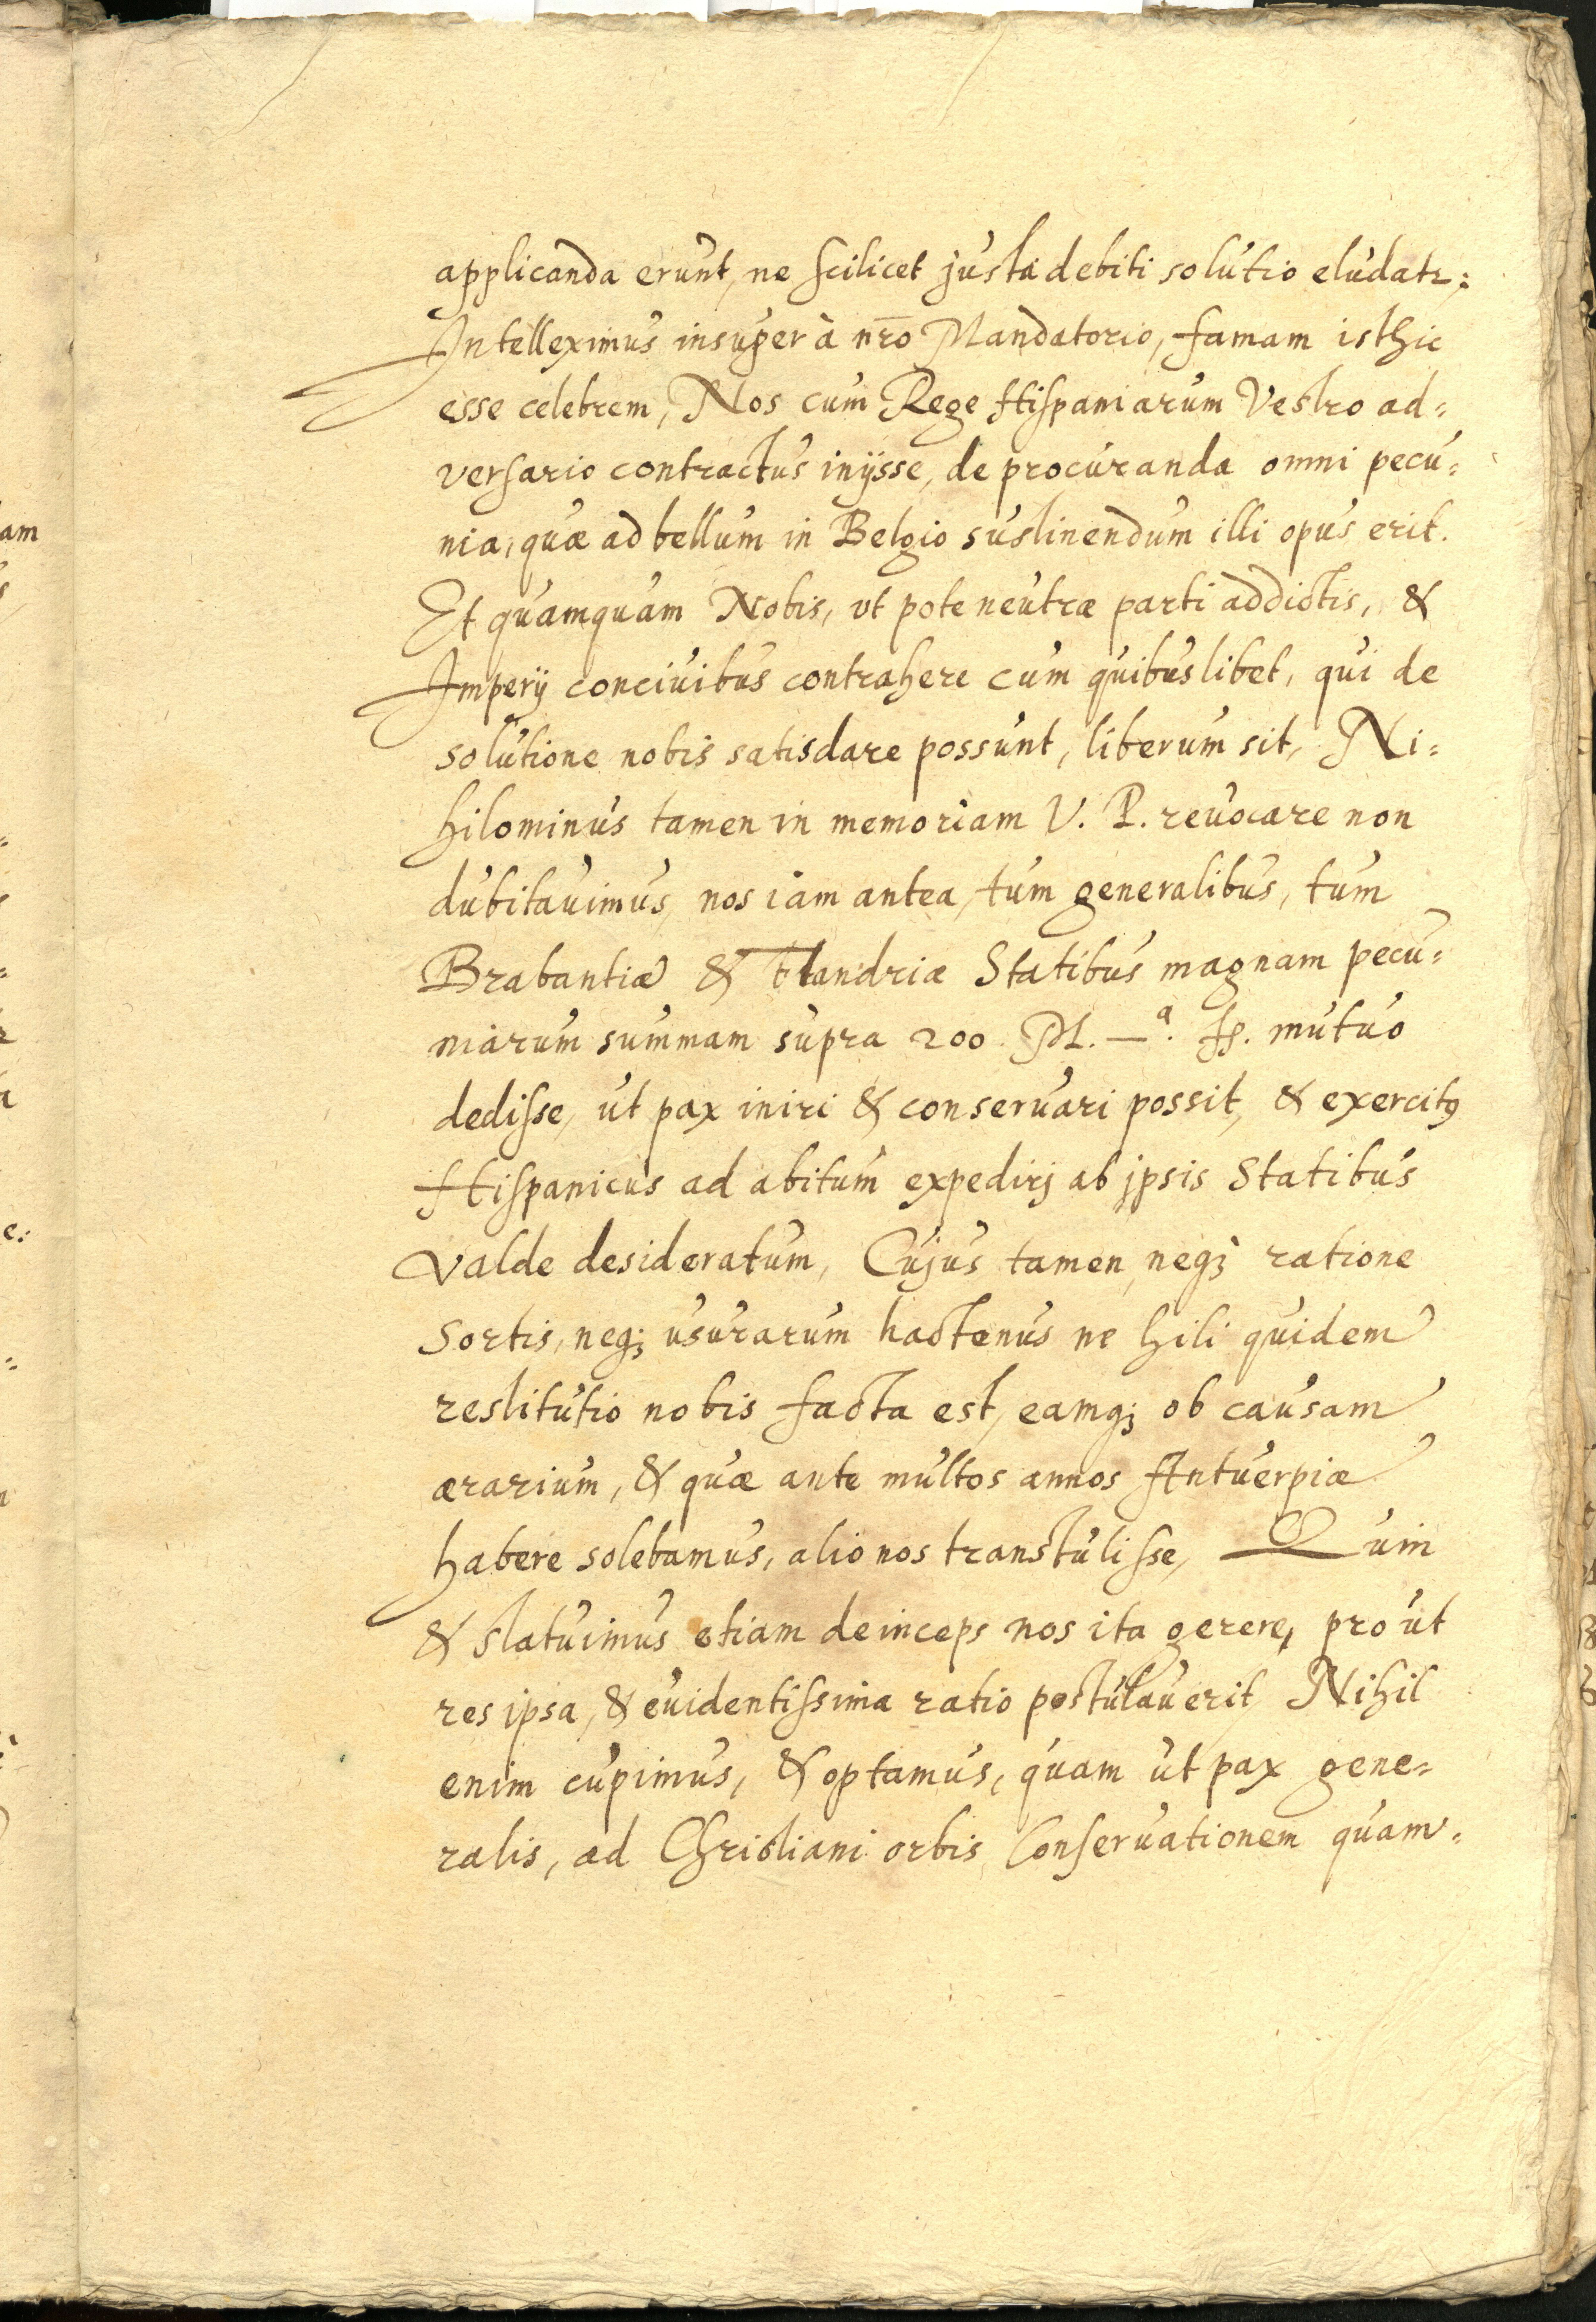 applicanda erunt, ne scilicet justa debiti solutio eludatr;
Intelleximus insuper à nr̄o Mandatorio, famam isthic
esse celebrem, Nos cum Rege Hispaniarum Vestro ad=
versario contractus inijsse, de procuranda omni pecu=
nia, quæ ad bellum in Belgio sustinendum illi opus erit.
Et quamquam Nobis, vt pote neutræ parti addictis, &
Imperij conciuibus contrahere cum quibuslibet, qui de
solutione nobis satisdare possunt, liberum sit, Ni=
hilominus tamen in memoriam V. P. reuocare non
dubitauimus, nos iam antea, tum generalibus, tum
Brabantiæ & Flandriæ Statibus magnam pecu=
niarum summam supra 200 M. mutuo
dedisse, ut pax iniri & conseruari possit, & exercitꝰ
Hispanicus ad abitum expedirj ab jpsis Statibus
valde desideratum, Cujus tamen, neqꝫ ratione
Sortis, neqꝫ usurarum hactenus ne hili quidem
restitutio nobis facta est, eamqꝫ ob causam
ærarium, & quæ ante multos annos Antuerpiæ
habere solebamus, alio nos transtulisse, Quin
& statuimus etiam deinceps nos ita gerere, pro ut
res ipsa, & euidentissima ratio postulauerit, Nihil
enim cupimus, & optamus, quam ut pax gene=
ralis, ad Christiani orbis Conseruationem quam=
am
e: